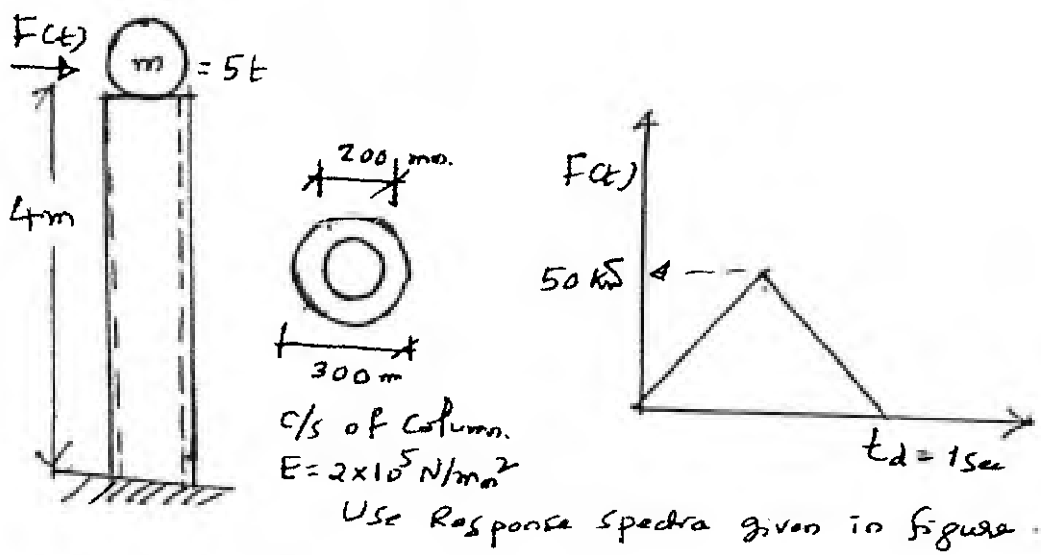 F(t)
m = 5t
4m
200 mm.
300 m
c/s of Column.
E = 2×10⁵ N/mm²
F(t)
50 kN
td = 1 sec
Use Response spectra given in figure.